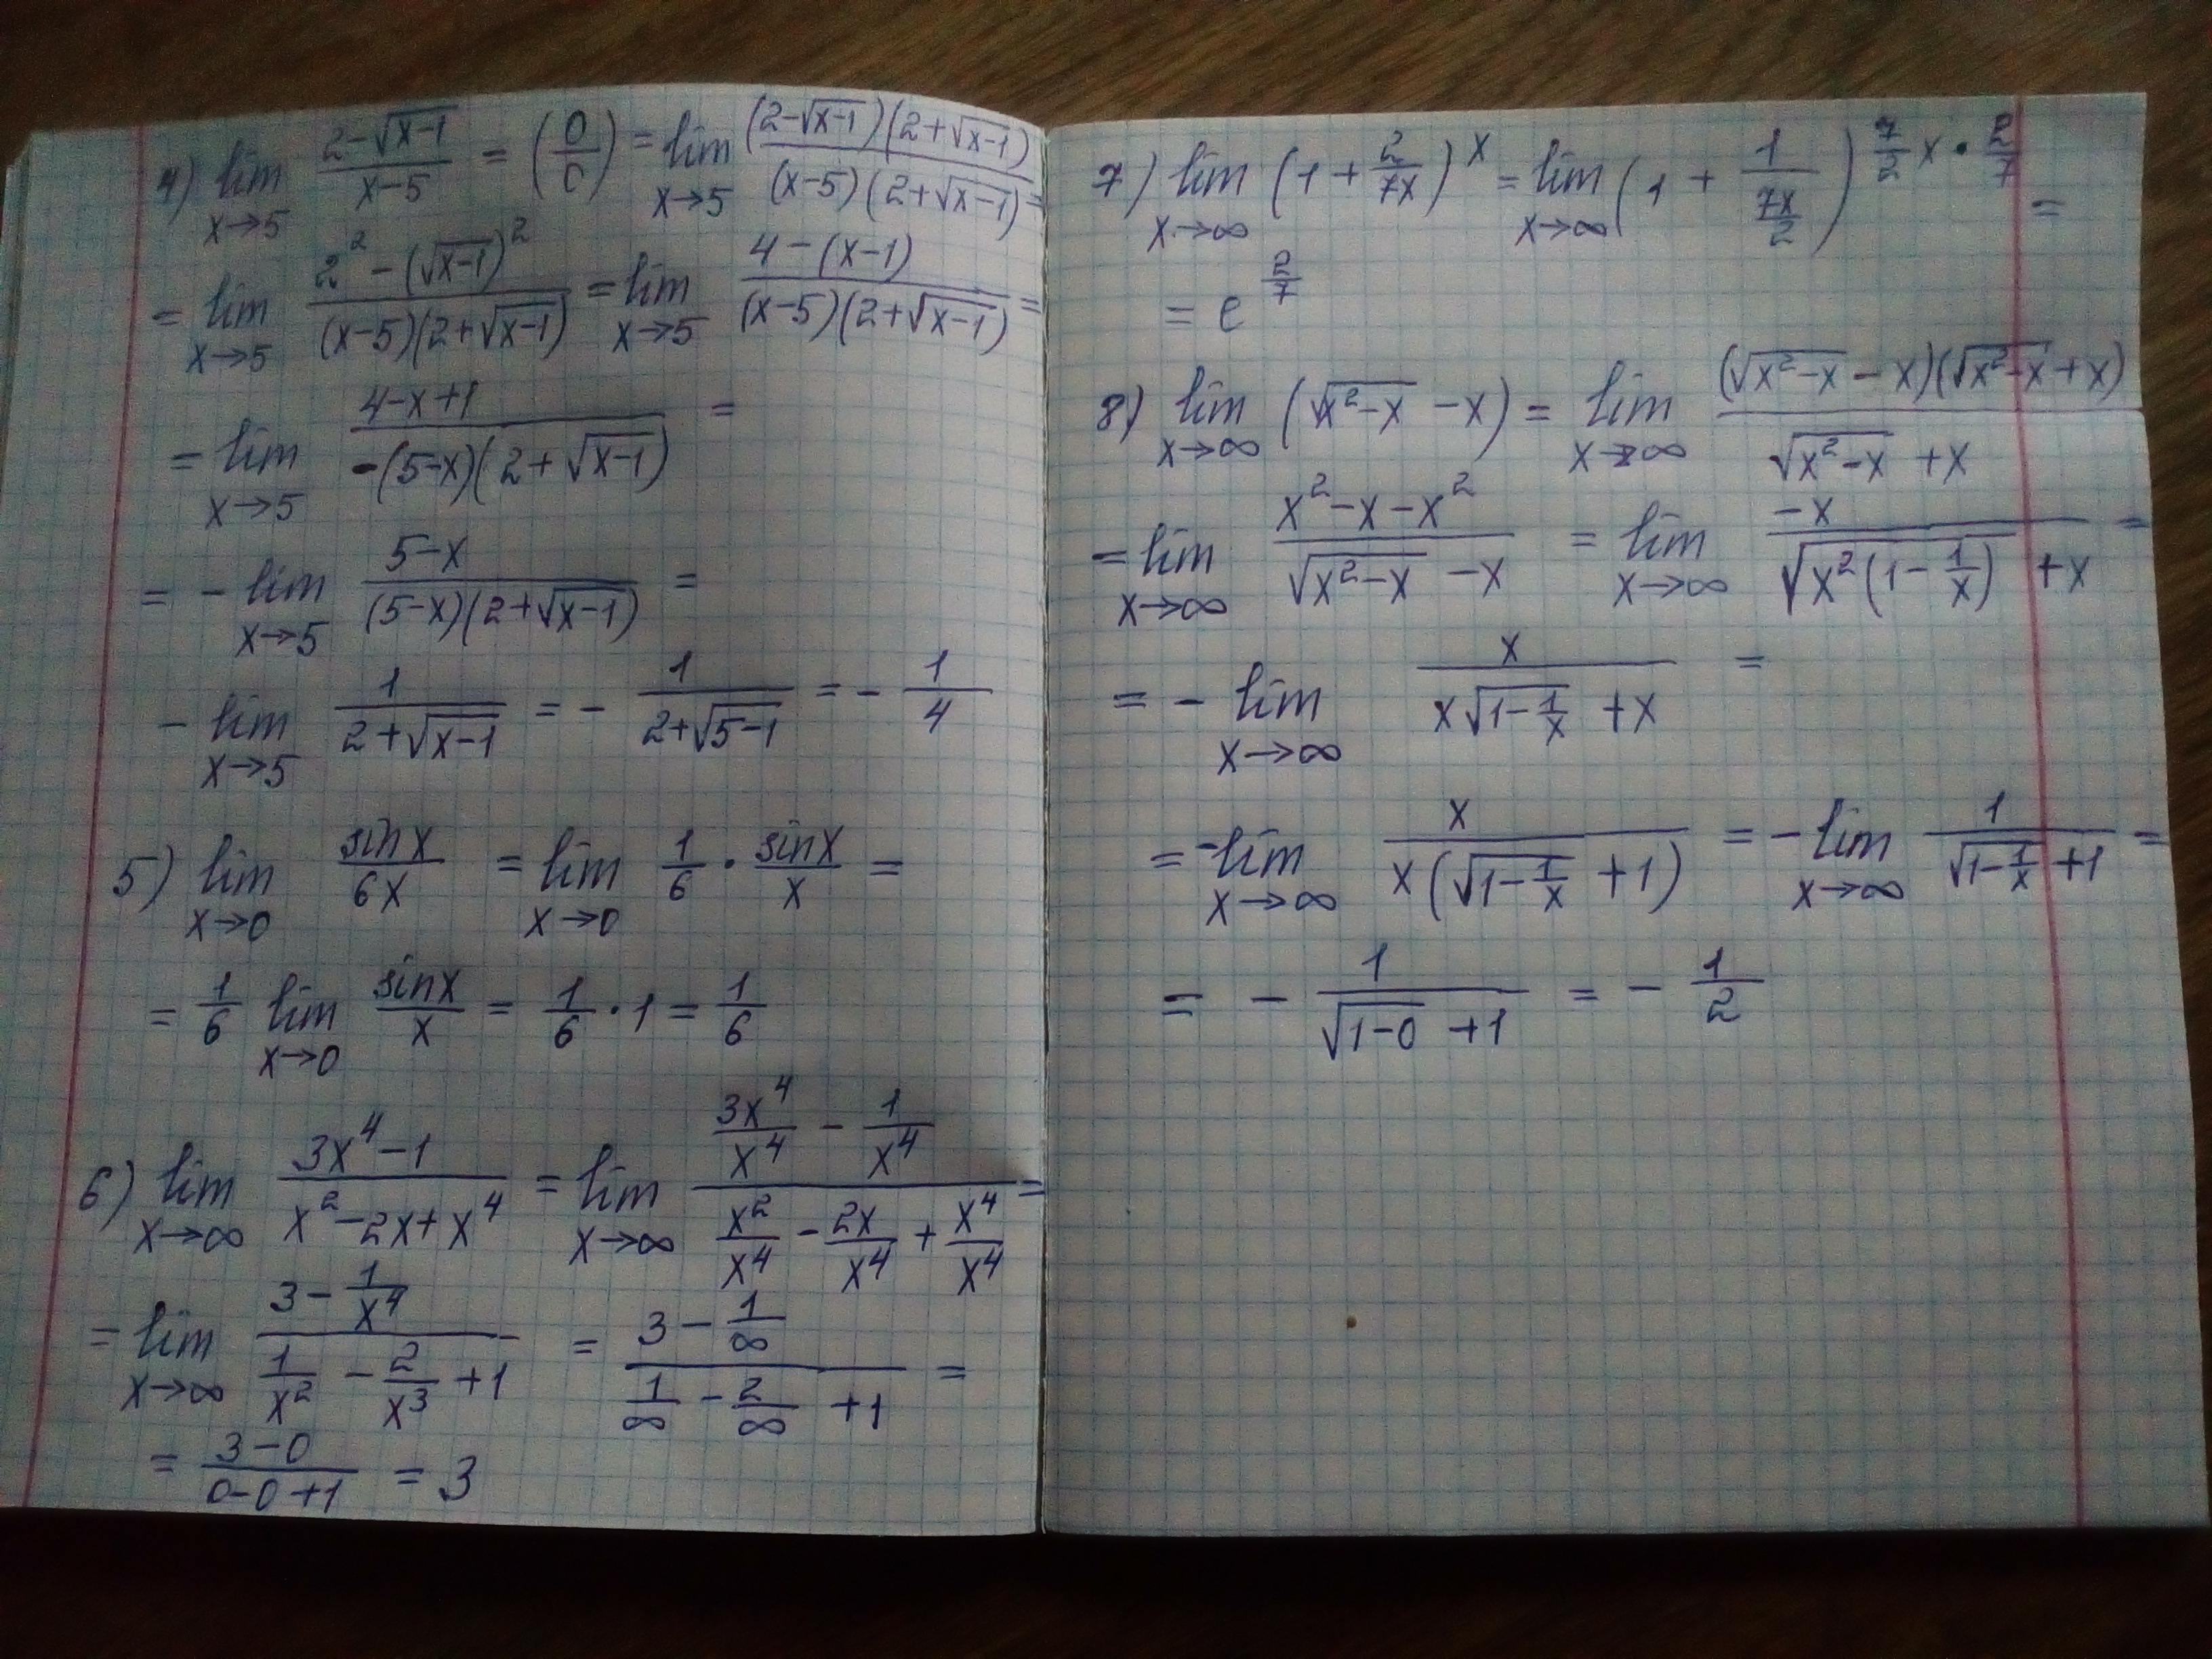 4) lim x→5 (2-√(x-1))/(x-5) = (0/0) = lim x→5 ((2-√(x-1))(2+√(x-1)))/((x-5)(2+√(x-1))) =
= lim x→5 (2²-(√(x-1))²)/((x-5)(2+√(x-1))) = lim x→5 (4-(x-1))/((x-5)(2+√(x-1))) =
= lim x→5 (4-x+1)/(-(5-x)(2+√(x-1))) =
= - lim x→5 (5-x)/((5-x)(2+√(x-1))) =
- lim x→5 1/(2+√(x-1)) = - 1/(2+√(5-1)) = - 1/4
5) lim x→0 sinx/6x = lim x→0 1/6 · sinx/x =
= 1/6 lim x→0 sinx/x = 1/6 · 1 = 1/6
6) lim x→∞ (3x⁴-1)/(x²-2x+x⁴) = lim x→∞ (3x⁴/x⁴ - 1/x⁴)/(x²/x⁴ - 2x/x⁴ + x⁴/x⁴) =
= lim x→∞ (3 - 1/x⁴)/(1/x² - 2/x³ + 1) = (3 - 1/∞)/(1/∞ - 2/∞ + 1) =
= (3-0)/(0-0+1) = 3
7) lim x→∞ (1 + 2/7x)^x = lim x→∞ (1 + 1/(7x/2))^(7/2 x · 2/7) =
= e^(2/7)
8) lim x→∞ (√(x²-x) - x) = lim x→∞ ((√(x²-x) - x)(√(x²-x) + x))/(√(x²-x) + x)
= lim x→∞ (x²-x-x²)/(√(x²-x) - x) = lim x→∞ -x/(√(x²(1 - 1/x)) + x) =
= - lim x→∞ x/(x√(1 - 1/x) + x) =
= - lim x→∞ x/(x(√(1 - 1/x) + 1)) = - lim x→∞ 1/(√(1 - 1/x) + 1) =
= - 1/(√(1-0) + 1) = - 1/2